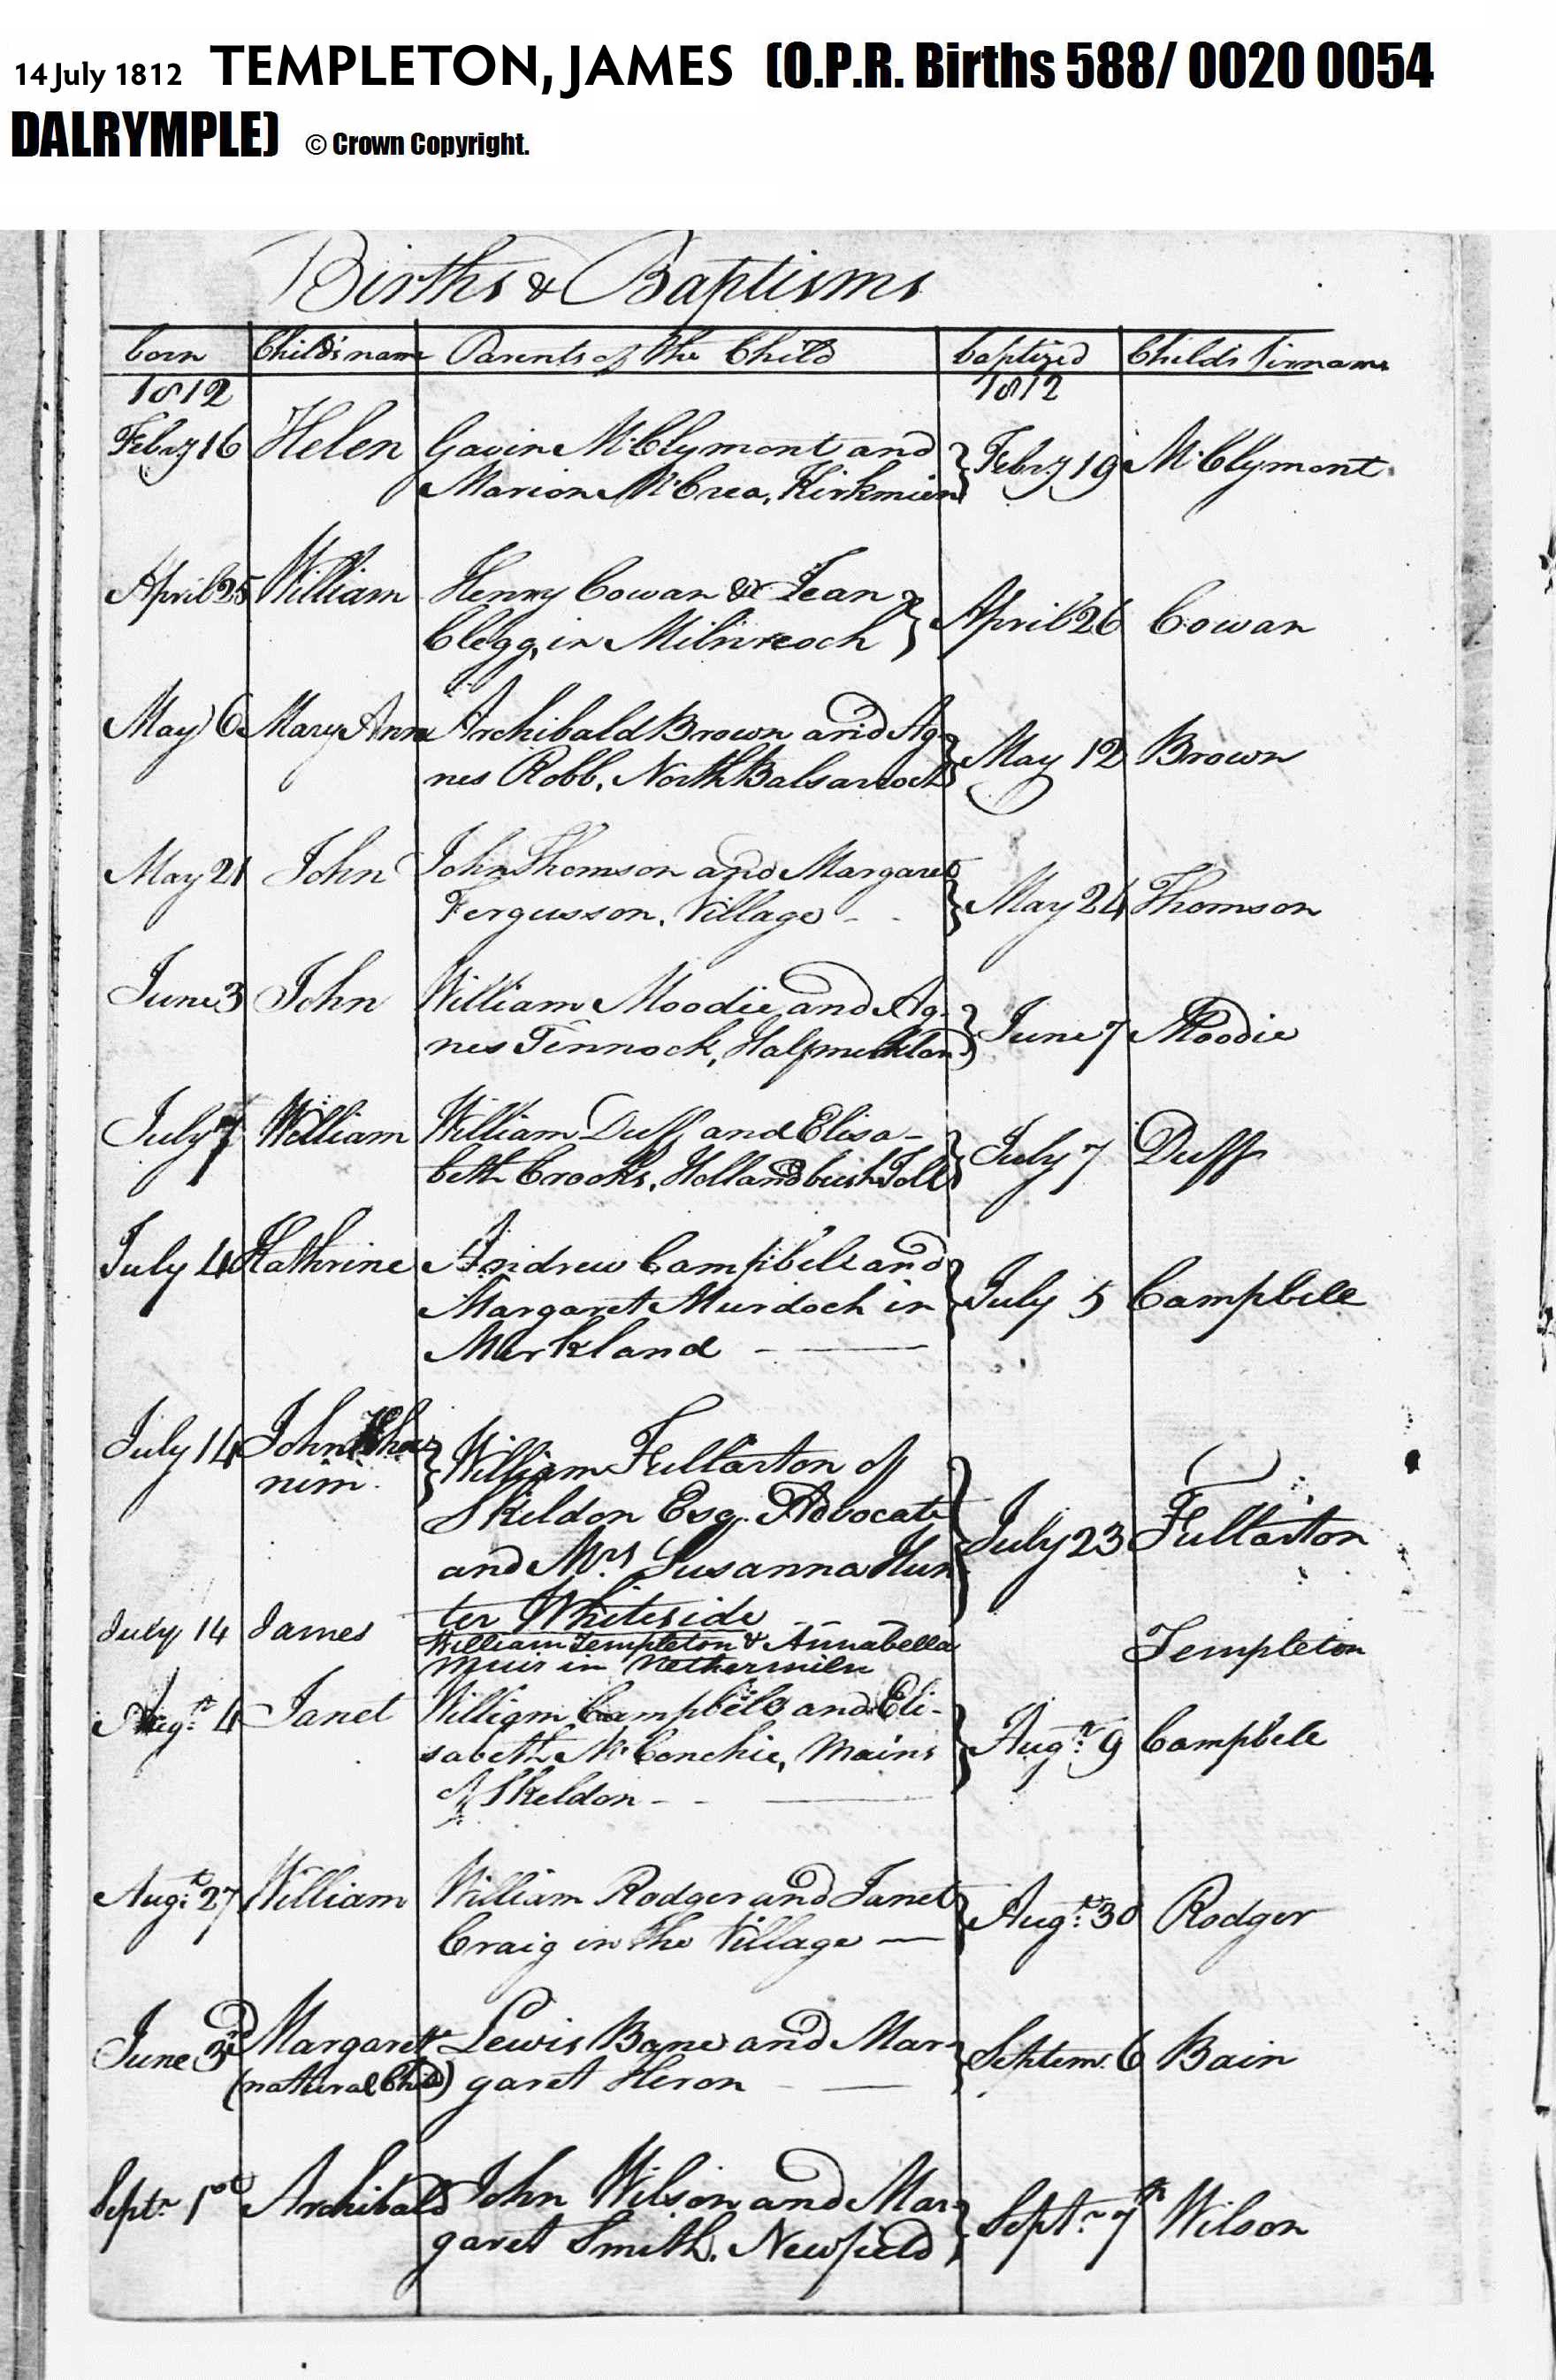 14 July 1812 TEMPLETON, JAMES (O.P.R. Births 588/ 0020 0054
DALRYMPLE) © Crown Copyright.
Births & Baptisms
born Child's name Parents of the Child baptized Child's Sirname
1812 1812
Febry 16 Helen Gavin McClymont and Febry 19 McClymont
Marion McCrea, Kirkmien
April 25 William Henry Cowan & Jean April 26 Cowan
Clegg, in Milnreoch
May 6 Mary Ann Archibald Brown and Ag- May 12 Brown
nes Robb, North Balsarroch
May 21 John John Thomson and Margaret May 24 Thomson
Fergusson, Village - -
June 3 John William Moodie and Ag- June 7 Moodie
nes Tennock, Halfmerkland
July 7 William William Duff and Elisa- July 7 Duff
beth Crooks, Hollandbush Toll
July 4 Kathrine Andrew Campbell and July 5 Campbell
Margaret Murdoch in
Merkland
July 14 John William Fullarton of
nim Skeldon Esq. Advocate July 23 Fullarton
and Mrs Susanna Hun
ter Whiteside
July 14 James William Templeton & Annabella Templeton
Muir in Nethermiln
Augt. 4 Janet William Campbell and Eli- Augt. 9 Campbell
sabeth McConchie, Mains
of Skeldon - -
Augt. 27 William William Rodger and Janet Augt. 30 Rodger
Craig in the Village —
June 3d Margaret Lewis Bane and Mar- Septem. 6 Bain
(natural Child) garet Heron
Septr. 1st Archibald John Wilson and Mar- Septr. 7th Wilson
garet Smith, Newfield